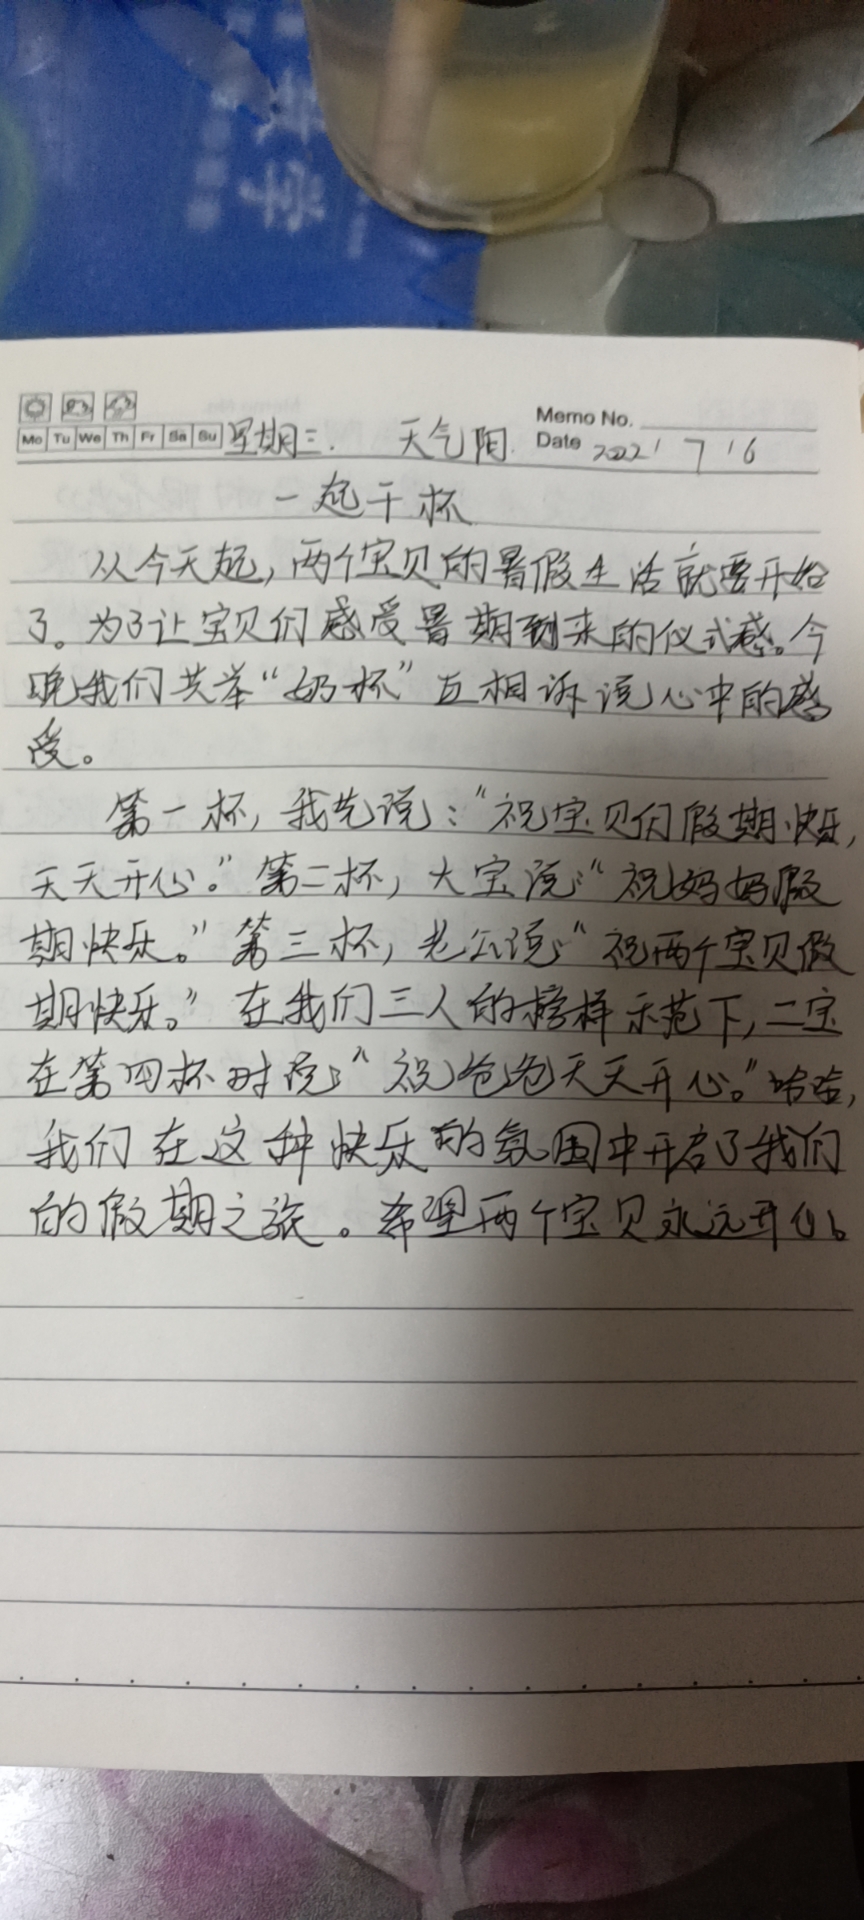 数学
Mo Tu We Th Fr Sa Su 星期三. 天气阴. Memo No.
Date 2022 / 7 / 6
一起干杯
从今天起,两个宝贝的暑假生活就要开始
了。为了让宝贝们感受暑期到来的仪式感。今
晚我们共举“奶杯”互相诉说心中的感
受。
第一杯,我先说:“祝宝贝们假期快乐,
天天开心。”第二杯,大宝说:“祝妈妈假
期快乐。”第三杯,老公说:“祝两个宝贝假
期快乐。”在我们三人的榜样示范下,二宝
在第四杯时说:“祝爸爸天天开心。”哈哈,
我们在这种快乐的氛围中开启了我们
的假期之旅。希望两个宝贝永远开心。